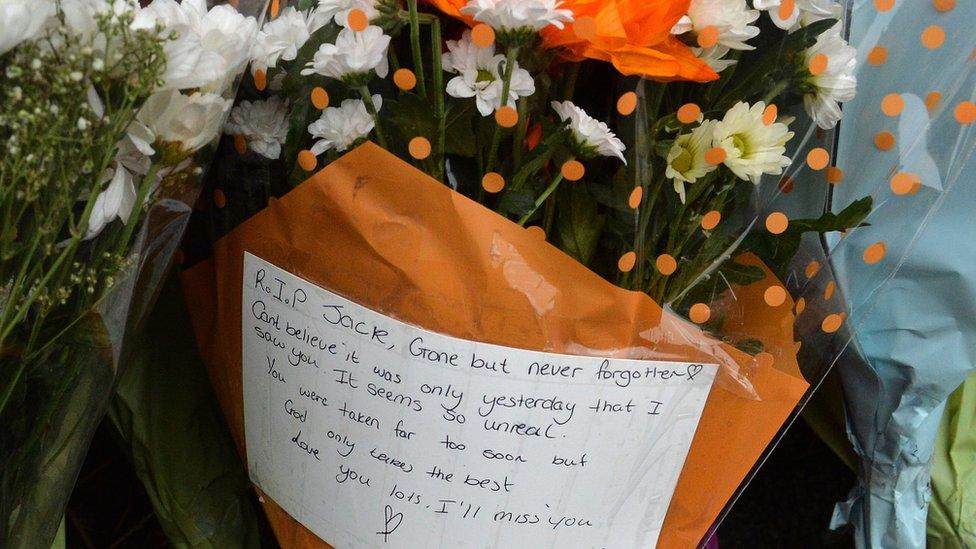 R.I.P Jack, Gone but never forgotten♡
Cant believe it was only yesterday that I
saw you. It seems so unreal.
You were taken far too soon but
God only takes the best
Love you lots. I'll miss you
♡